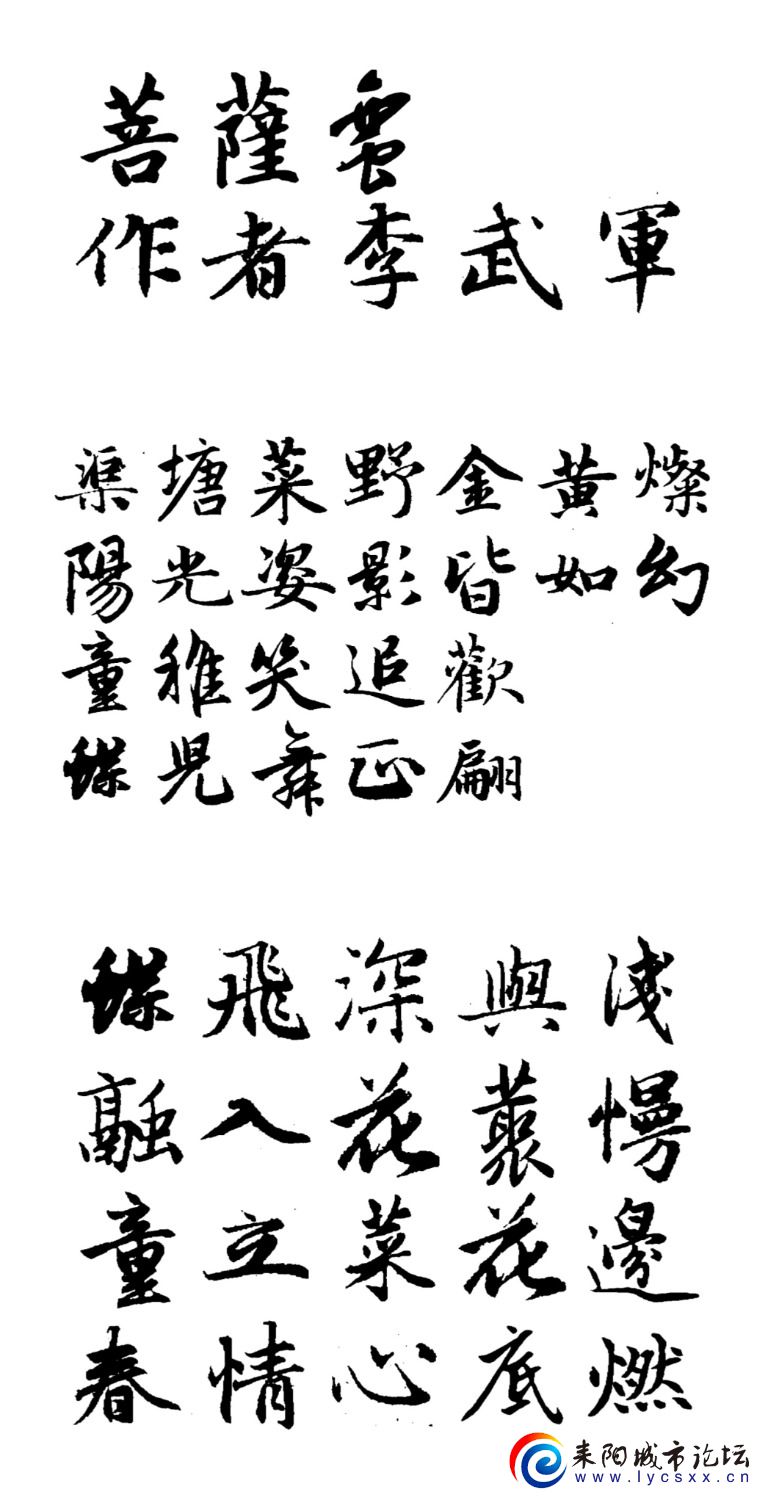 菩薩蠻
作者李武軍
渠塘菜野金黄燦
陽光姿影皆如幻
童稚笑追歡
蝶兒舞正翩
蝶飛深與淺
融入花叢慢
童立菜花邊
春情心底燃
耒阳城市论坛
www.lycsxx.cn